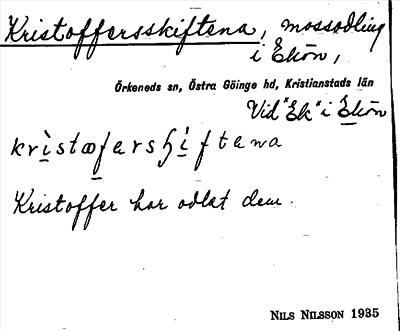 Kristoffersskiftena, mossodling
i Ekön,
Örkeneds sn, Östra Göinge hd, Kristianstads län
Vid "Ek" i Ekön
Kristoffer har odlat dem.
NILS NILSSON 1935